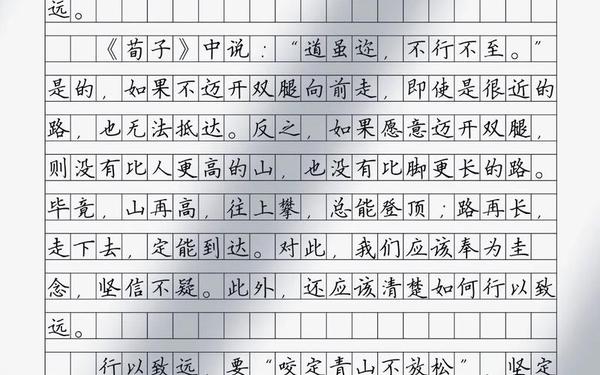 远。
《荀子》中说：“道虽迩，不行不至。”
是的，如果不迈开双腿向前走，即使是很近的
路，也无法抵达。反之，如果愿意迈开双腿，
则没有比人更高的山，也没有比脚更长的路。
毕竟，山再高，往上攀，总能登顶；路再长，
走下去，定能到达。对此，我们应该奉为圭
念，坚信不疑。此外，还应该清楚如何行以致
远。
行以致远，要“咬定青山不放松”，坚定